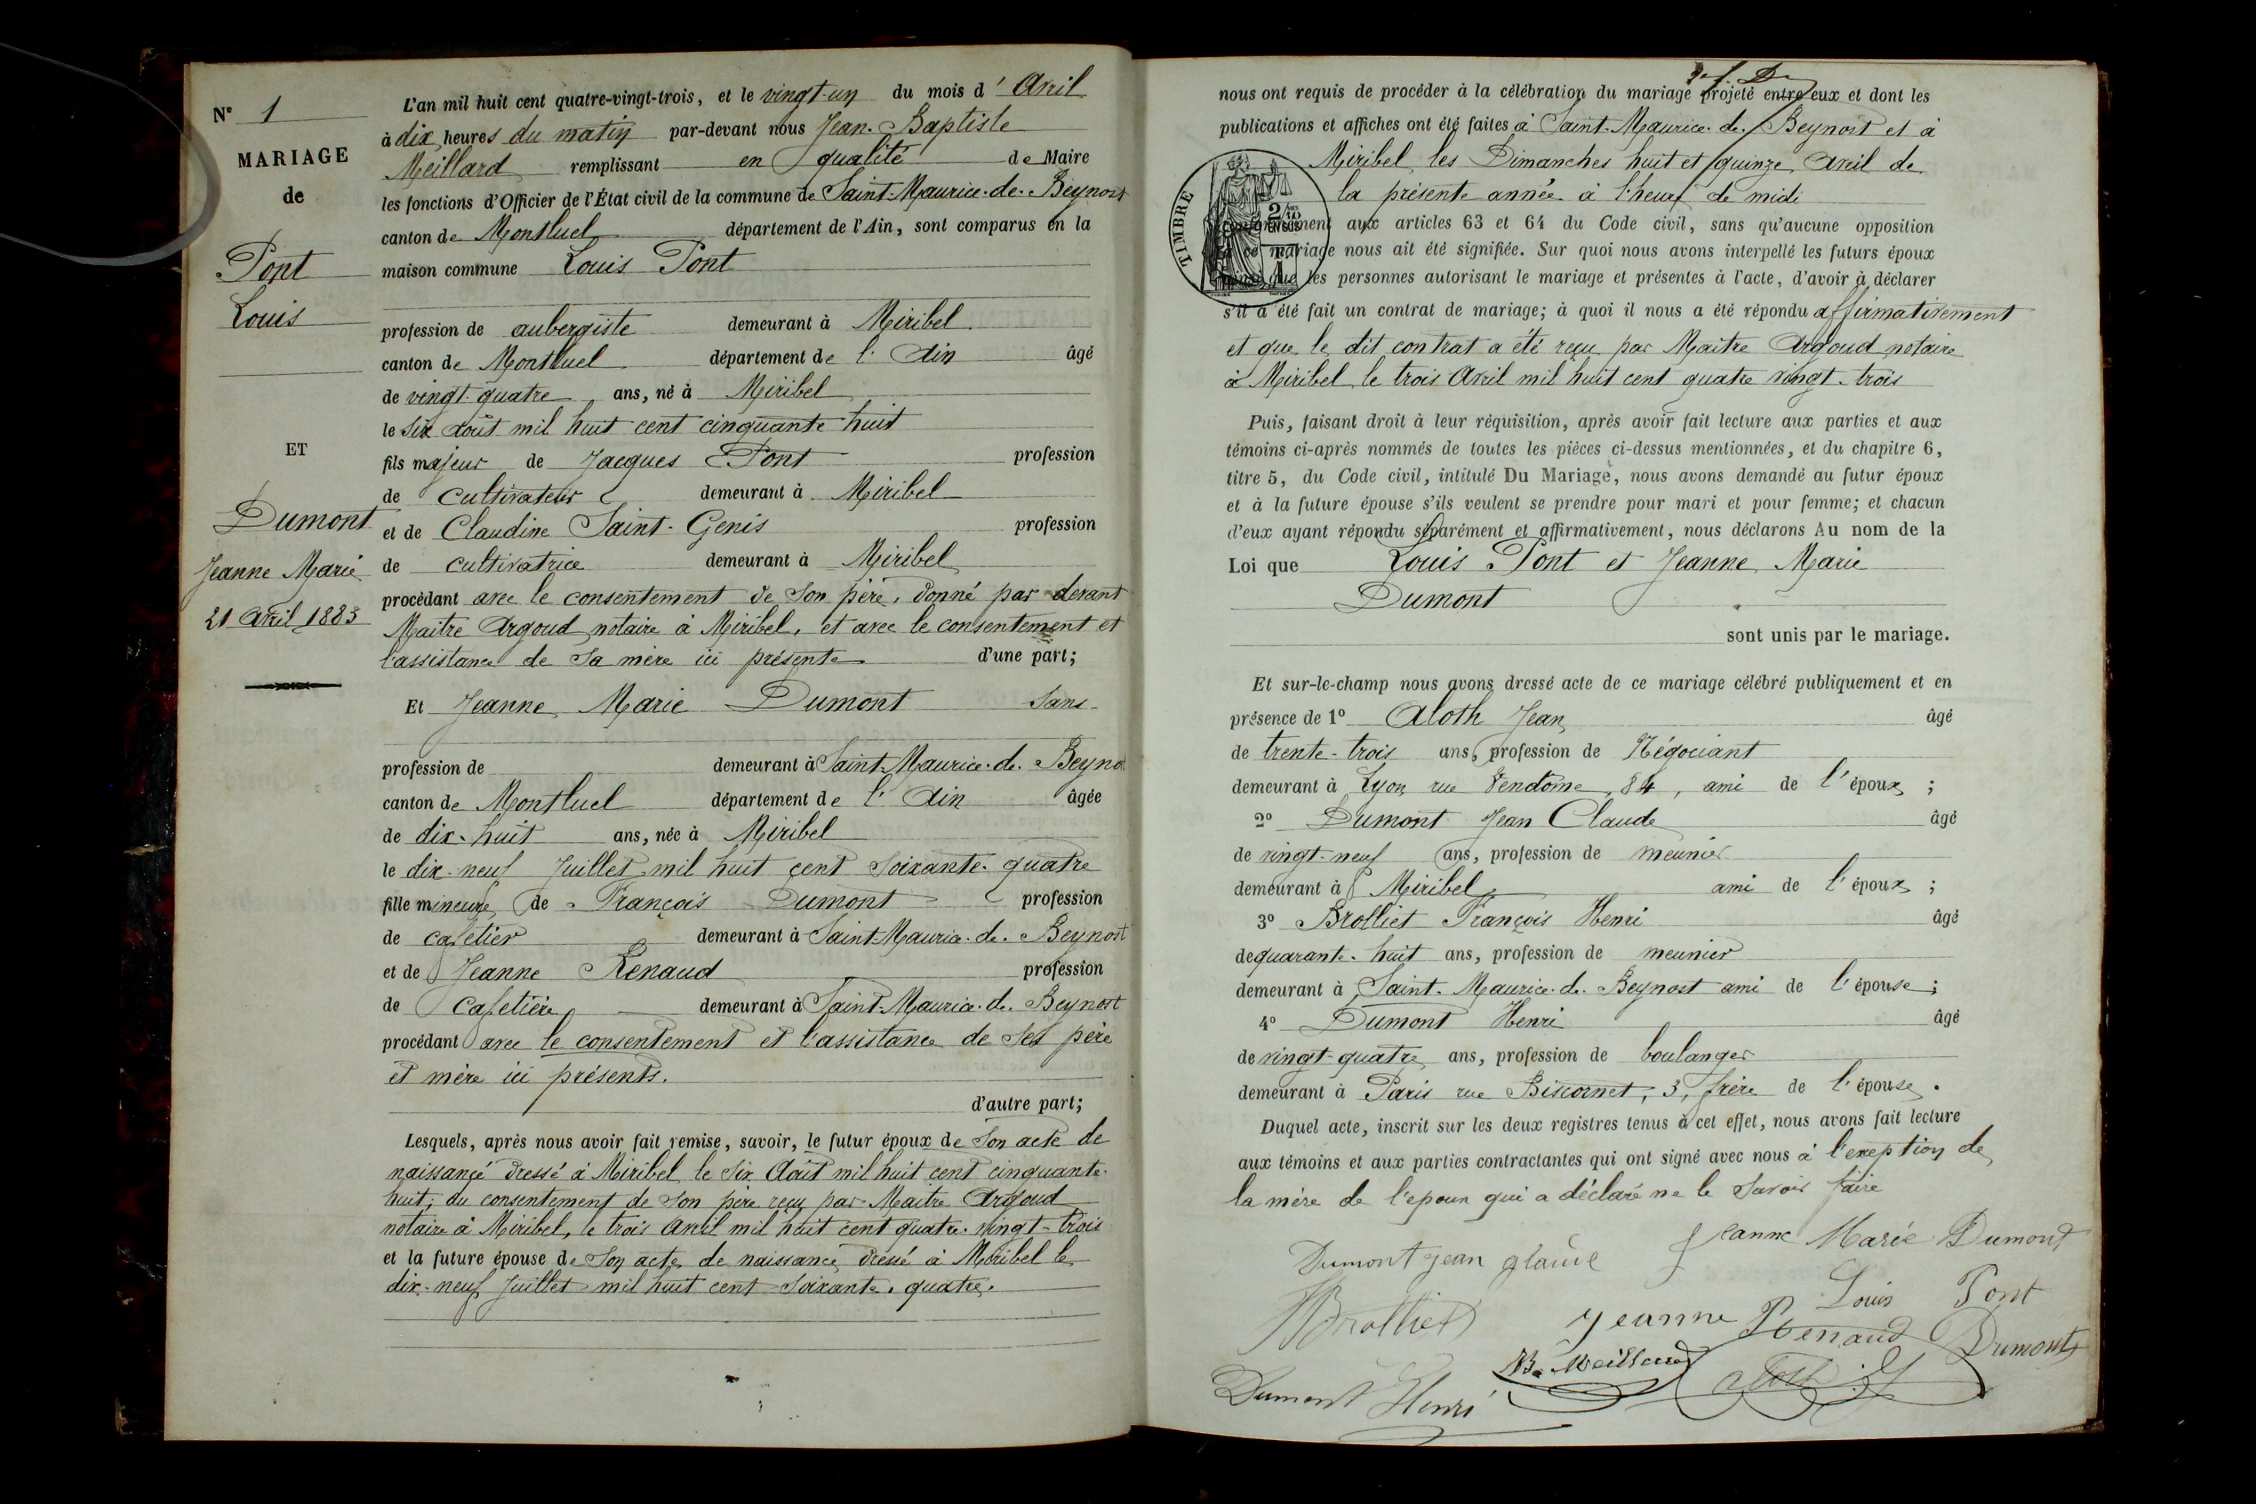 N° 1
MARIAGE
de
Pont
Louis
ET
Dumont
Jeanne Marie
21 Avril 1883
L'an mil huit cent quatre-vingt-trois, et le vingt-un du mois d' Avril
à dix heures du matin par-devant nous Jean-Baptiste
Meillard remplissant en qualité de Maire
les fonctions d'Officier de l'État civil de la commune de Saint-Maurice-de-Beynost
canton de Montluel département de l'Ain, sont comparus en la
maison commune Louis Pont
profession de aubergiste demeurant à Miribel
canton de Montluel département de l'Ain âgé
de vingt-quatre ans, né à Miribel
le six Août mil huit cent cinquante huit
fils majeur de Jacques Pont profession
de cultivateur demeurant à Miribel
et de Claudine Saint-Genis profession
de cultivatrice demeurant à Miribel
procédant avec le consentement de son père, donné par devant
Maitre Argoud notaire à Miribel, et avec le consentement et
l'assistance de sa mère ici présente d'une part;
Et Jeanne Marie Dumont Sans
profession de demeurant à Saint-Maurice-de-Beyno
canton de Montluel département de l'Ain âgée
de dix-huit ans, née à Miribel
le dix-neuf Juillet mil huit cent soixante-quatre
fille mineure de François Dumont profession
de cafetier demeurant à Saint-Maurice-de-Beynost
et de Jeanne Renaud profession
de cafetière demeurant à Saint-Maurice-de-Beynost
procédant avec le consentement et l'assistance de ses père
et mère ici présents.
d'autre part;
Lesquels, après nous avoir fait remise, savoir, le futur époux de son acte de
naissance dressé à Miribel le six Août mil huit cent cinquante-
huit, du consentement de son père reçu par Maitre Argoud
notaire à Miribel, le trois avril mil huit cent quatre-vingt-trois
et la future épouse de son acte de naissance dressé à Miribel le
dix-neuf Juillet mil huit cent soixante-quatre.
nous ont requis de procéder à la célébration du mariage projeté entre eux et dont les
publications et affiches ont été faites à Saint-Maurice-de-Beynost et à
Miribel les Dimanches huit et quinze Avril de
la présente année à l'heure de midi
TIMBRE
conformément aux articles 63 et 64 du Code civil, sans qu'aucune opposition
à ce mariage nous ait été signifiée. Sur quoi nous avons interpellé les futurs époux
ainsi que les personnes autorisant le mariage et présentes à l'acte, d'avoir à déclarer
s'il a été fait un contrat de mariage; à quoi il nous a été répondu affirmativement
et que le dit contrat a été reçu par Maitre Argoud notaire
à Miribel le trois Avril mil huit cent quatre vingt-trois
Puis, faisant droit à leur réquisition, après avoir fait lecture aux parties et aux
témoins ci-après nommés de toutes les pièces ci-dessus mentionnées, et du chapitre 6,
titre 5, du Code civil, intitulé Du Mariage, nous avons demandé au futur époux
et à la future épouse s'ils veulent se prendre pour mari et pour femme; et chacun
d'eux ayant répondu séparément et affirmativement, nous déclarons Au nom de la
Loi que Louis Pont et Jeanne Marie
Dumont
sont unis par le mariage.
Et sur-le-champ nous avons dressé acte de ce mariage célébré publiquement et en
présence de 1° Aloth Jean âgé
de trente-trois ans, profession de Négociant
demeurant à Lyon rue Vendôme, 84, ami de l'époux;
2° Dumont Jean Claude âgé
de vingt-neuf ans, profession de meunier
demeurant à Miribel ami de l'époux;
3° Brolliet François Henri âgé
de quarante-huit ans, profession de meunier
demeurant à Saint-Maurice-de-Beynost ami de l'épouse;
4° Dumont Henri âgé
de vingt-quatre ans, profession de boulanger
demeurant à Paris rue Biscornet, 3, frère de l'épouse.
Duquel acte, inscrit sur les deux registres tenus à cet effet, nous avons fait lecture
aux témoins et aux parties contractantes qui ont signé avec nous à l'exeption de
la mère de l'epoux qui a déclaré ne le savoir faire
Jeanne Marie Dumont
Dumont jean glaude
Louis Pont
HBrolliet
Jeanne Renaud
Dumont
JB Meillard
Aloth
Dumont Henri